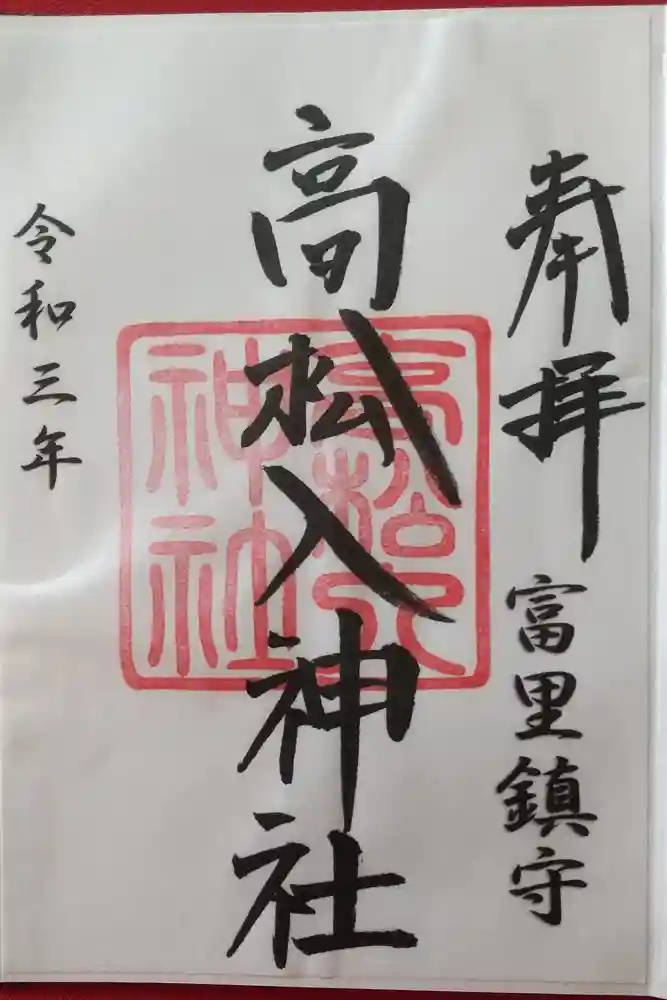 奉拝
富里鎮守
高松入神社
高松入
神社
令和三年